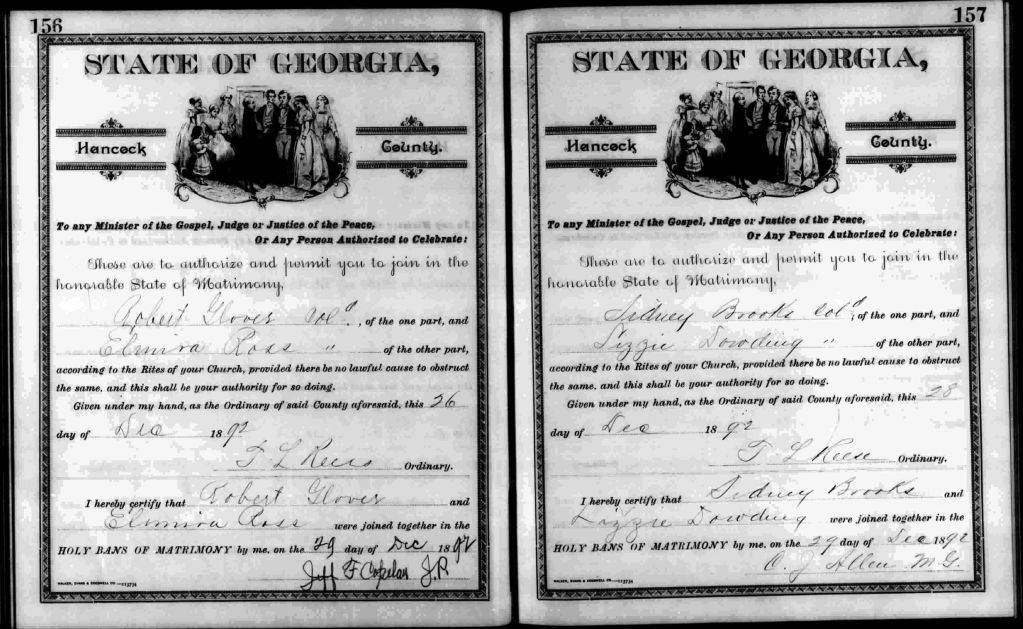 156
STATE OF GEORGIA,
Hancock County.
To any Minister of the Gospel, Judge or Justice of the Peace,
Or Any Person Authorized to Celebrate:
These are to authorize and permit you to join in the
honorable State of Matrimony,
Robert Glover Col'd., of the one part, and
Elmira Ross " of the other part,
according to the Rites of your Church, provided there be no lawful cause to obstruct
the same, and this shall be your authority for so doing.
Given under my hand, as the Ordinary of said County aforesaid, this 26
day of Dec 1892
T L Reese Ordinary.
I hereby certify that Robert Glover and
Elmira Ross were joined together in the
HOLY BANS OF MATRIMONY by me, on the 29 day of Dec 1892
Jeff F Copelan J.P.
WALKER, EVANS & COGSWELL CO. 113734
157
STATE OF GEORGIA,
Hancock County.
To any Minister of the Gospel, Judge or Justice of the Peace,
Or Any Person Authorized to Celebrate:
These are to authorize and permit you to join in the
honorable State of Matrimony,
Sidney Brooks Col'd, of the one part, and
Lizzie Dowding " of the other part,
according to the Rites of your Church, provided there be no lawful cause to obstruct
the same, and this shall be your authority for so doing.
Given under my hand, as the Ordinary of said County aforesaid, this 28
day of Dec 1892
T L Reese Ordinary.
I hereby certify that Sidney Brooks and
Lizzie Dowding were joined together in the
HOLY BANS OF MATRIMONY by me, on the 29 day of Dec 1892
C. J Allen M.G.
WALKER, EVANS & COGSWELL CO. 113734